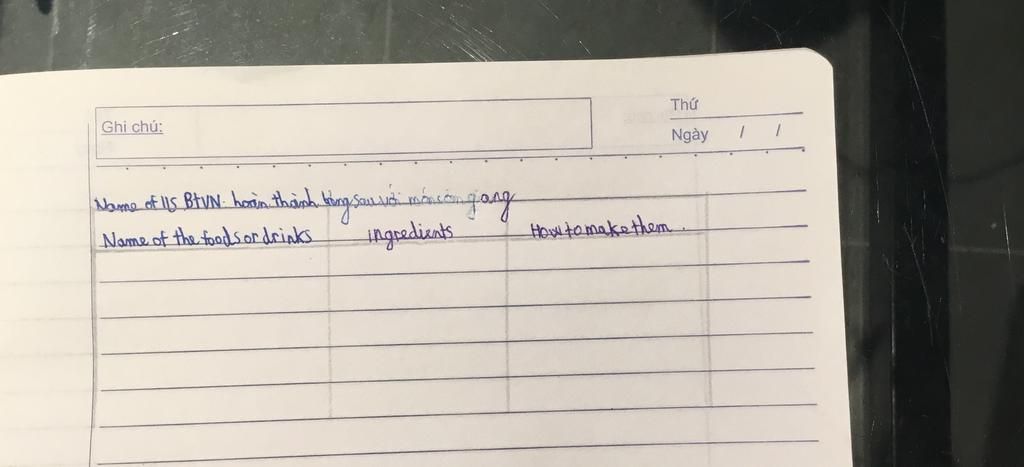 Ghi chú:
Thứ
Ngày / /
Name of BTVN: hoàn thành bảng sau với món ăn
Name of the foods or drinks ingredients How to make them.